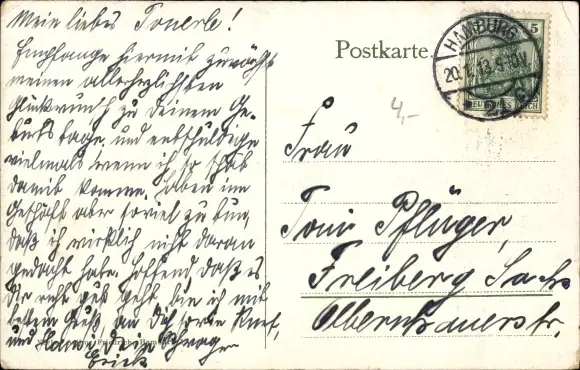 Mein liebes Tonerle!
Empfange hiermit zunächst
meinen allerherzlichsten
Glückwunsch zu Deinem Ge-
burtstage, und entschuldige
vielmals wenn ich so spät
damit komme. Haben im
Geschäft aber soviel zu tun,
daß ich wirklich nicht daran
gedacht habe. Hoffend daß es
Dir recht gut geht bin ich mit
bestem Gruß, an Dich sowie
und Dein Schwager
Erich
Postkarte.
HAMBURG
20.1.13.9-10V.
5
DEUTSCHES REICH
4,-
Frau
Toni Pflüger,
Freiberg Sachs
Olbernhauerstr.